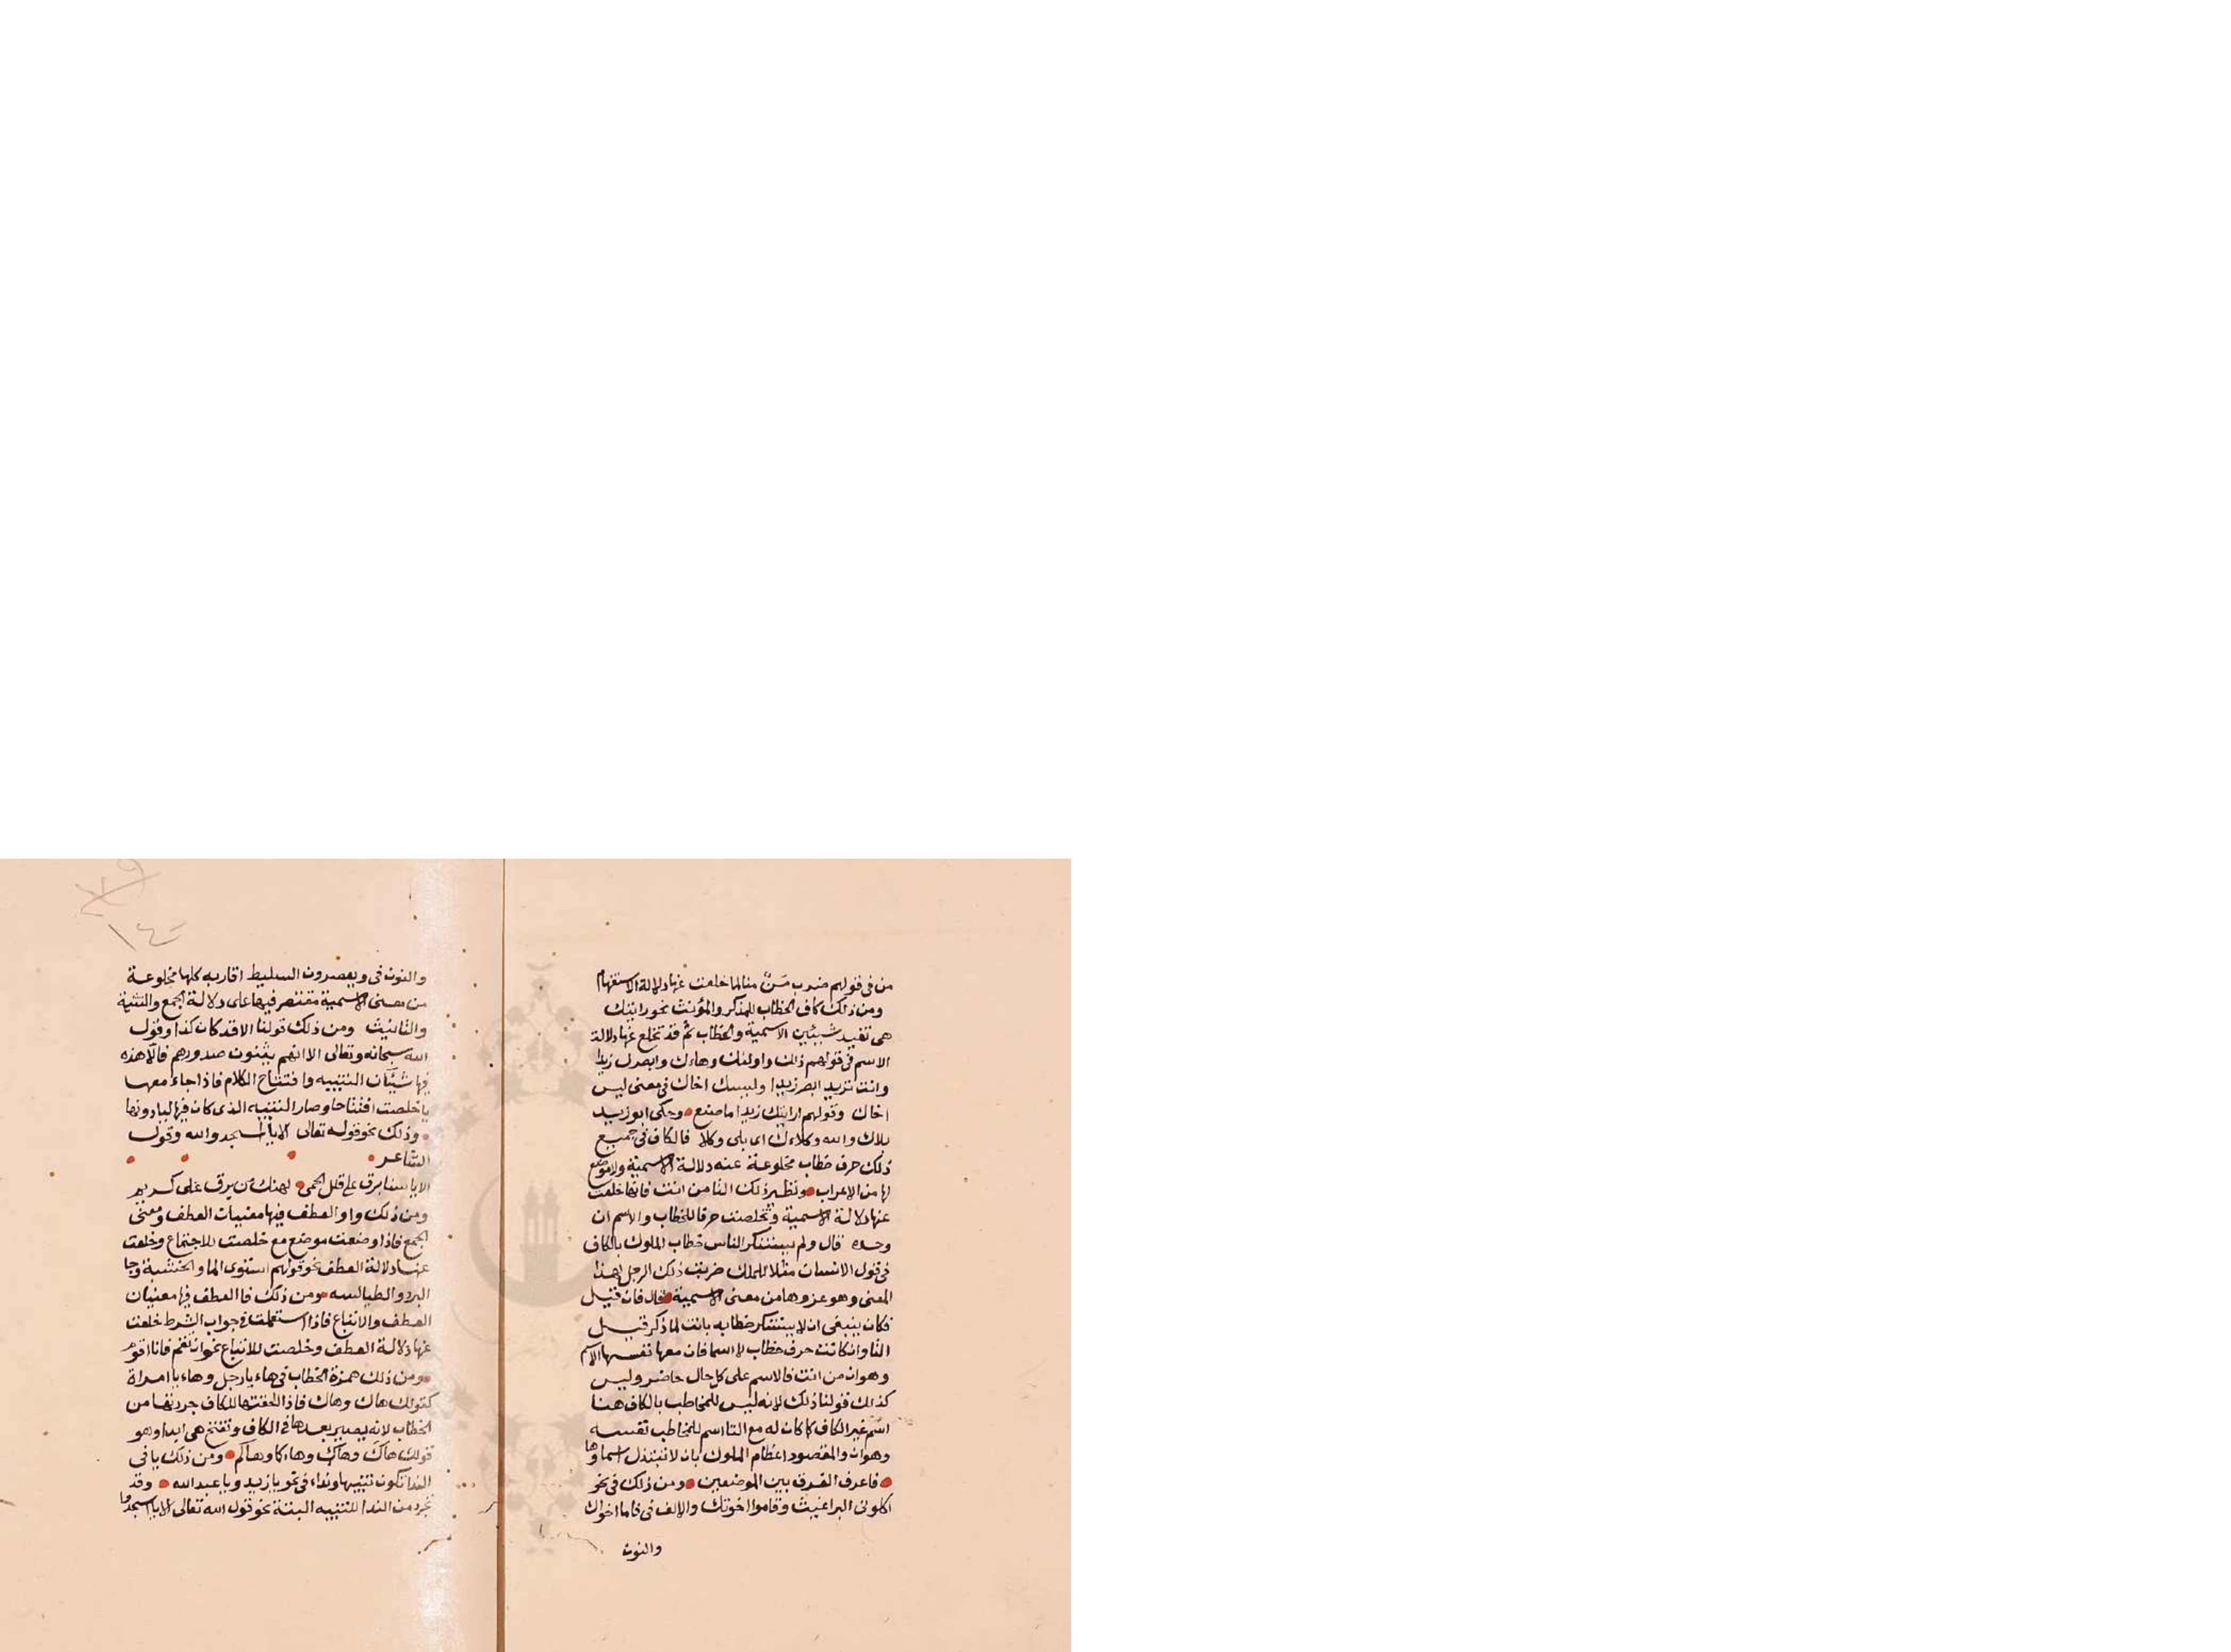 من في قولهم ضرب مَنٌ منا لما خلعت عنها دلالة الاستفهام
ومن ذلك كاف الخطاب للمذكر والمؤنث نحو رايتك
هي تفيد شيئين الاسمية والخطاب ثم قد تخلع عنها دلالة
الاسم في قولهم ذلك واولئك وهاءك وابصرك زيدا
وانت تريد ابصر زيدا وليسك اخاك في معنى ليس
اخاك وقولهم ارايتك زيدا ما صنع وحكى ابو زيد
بلاك والله وكلاك اي بلى وكلا فالكاف في جميع
ذلك حرف خطاب مخلوعة عنه دلالة الاسمية ولا موضع
لها من الاعراب ونظير ذلك التا من انت فانها خلعت
عنها دلالة الاسمية وتخلصت حرفا للخطاب والاسم ان
وحده قال ولم يستنكر الناس خطاب الملوك بالكاف
في قول الانسان مثلا للملك ضربت ذلك الرجل لهذا
المعنى وهو عروها من معنى الاسمية قال فان قيل
فكان ينبغي ان لا يستنكر خطابه بانت لما ذكر قيل
التا وان كانت حرف خطاب لا اسما فان معها نفسها الاسم
وهو ان من انت فالاسم على كل حال حاضر وليس
كذلك قولنا ذلك لانه ليس للمخاطب بالكاف هنا
اسم غير الكاف كما كان له مع التا اسم للمخاطب نفسه
وهو ان والمقصود اعظام الملوك بان لا تبتذل اسماوها
فاعرف الفرق بين الموضعين ومن ذلك في نحو
اكلوني البراغيث وقاموا اخوتك والالف في قاما اخواك
والنون
١٤٠
والنون في ويعصرون السليط اقاربه كلها مخلوعة
من معنى الاسمية مقتصر فيها على دلالة الجمع والتثنية
والتانيث ومن ذلك قولنا الا قد كان كذا وقول
الله سبحانه وتعالى الا انهم يثنون صدورهم فالا هذه
فيها شيئان التنبيه وافتتاح الكلام فاذا جاء معها
يا خلصت افتتاحا وصار التنبيه الذي كان فيها ليا دونها
وذلك نحو قوله تعالى الا يا اسجدوا لله وقول
الشاعر
الا يا سنا برق على قلل الحمى لهنك من برق على كريم
ومن ذلك واو العطف فيها معنيان العطف ومعنى
الجمع فاذا وضعت موضع مع خلصت للاجتماع وخلعت
عنها دلالة العطف نحو قولهم استوى الما والخشبة وجا
البرد والطيالسه ومن ذلك فا العطف فيها معنيان
العطف والاتباع فاذا استعملت في جواب الشرط خلعت
عنها دلالة العطف وخلصت للاتباع نحو ان تقم فانا اقوم
ومن ذلك همزة الخطاب في هاء يا رجل وهاء يا امراة
كقولك هاك وهاك فاذا الحقتها الكاف جردتها من
الخطاب لانه يصير بعدها في الكاف وتفتح هي ابدا وهو
قولك هاك وهاك وهاءكما وهاكم ومن ذلك يا في
الندا تكون تنبيها ونداء في نحو يا زيد ويا عبد الله وقد
تجرد من الندا للتنبيه البتة نحو قول الله تعالى الا يا اسجدوا